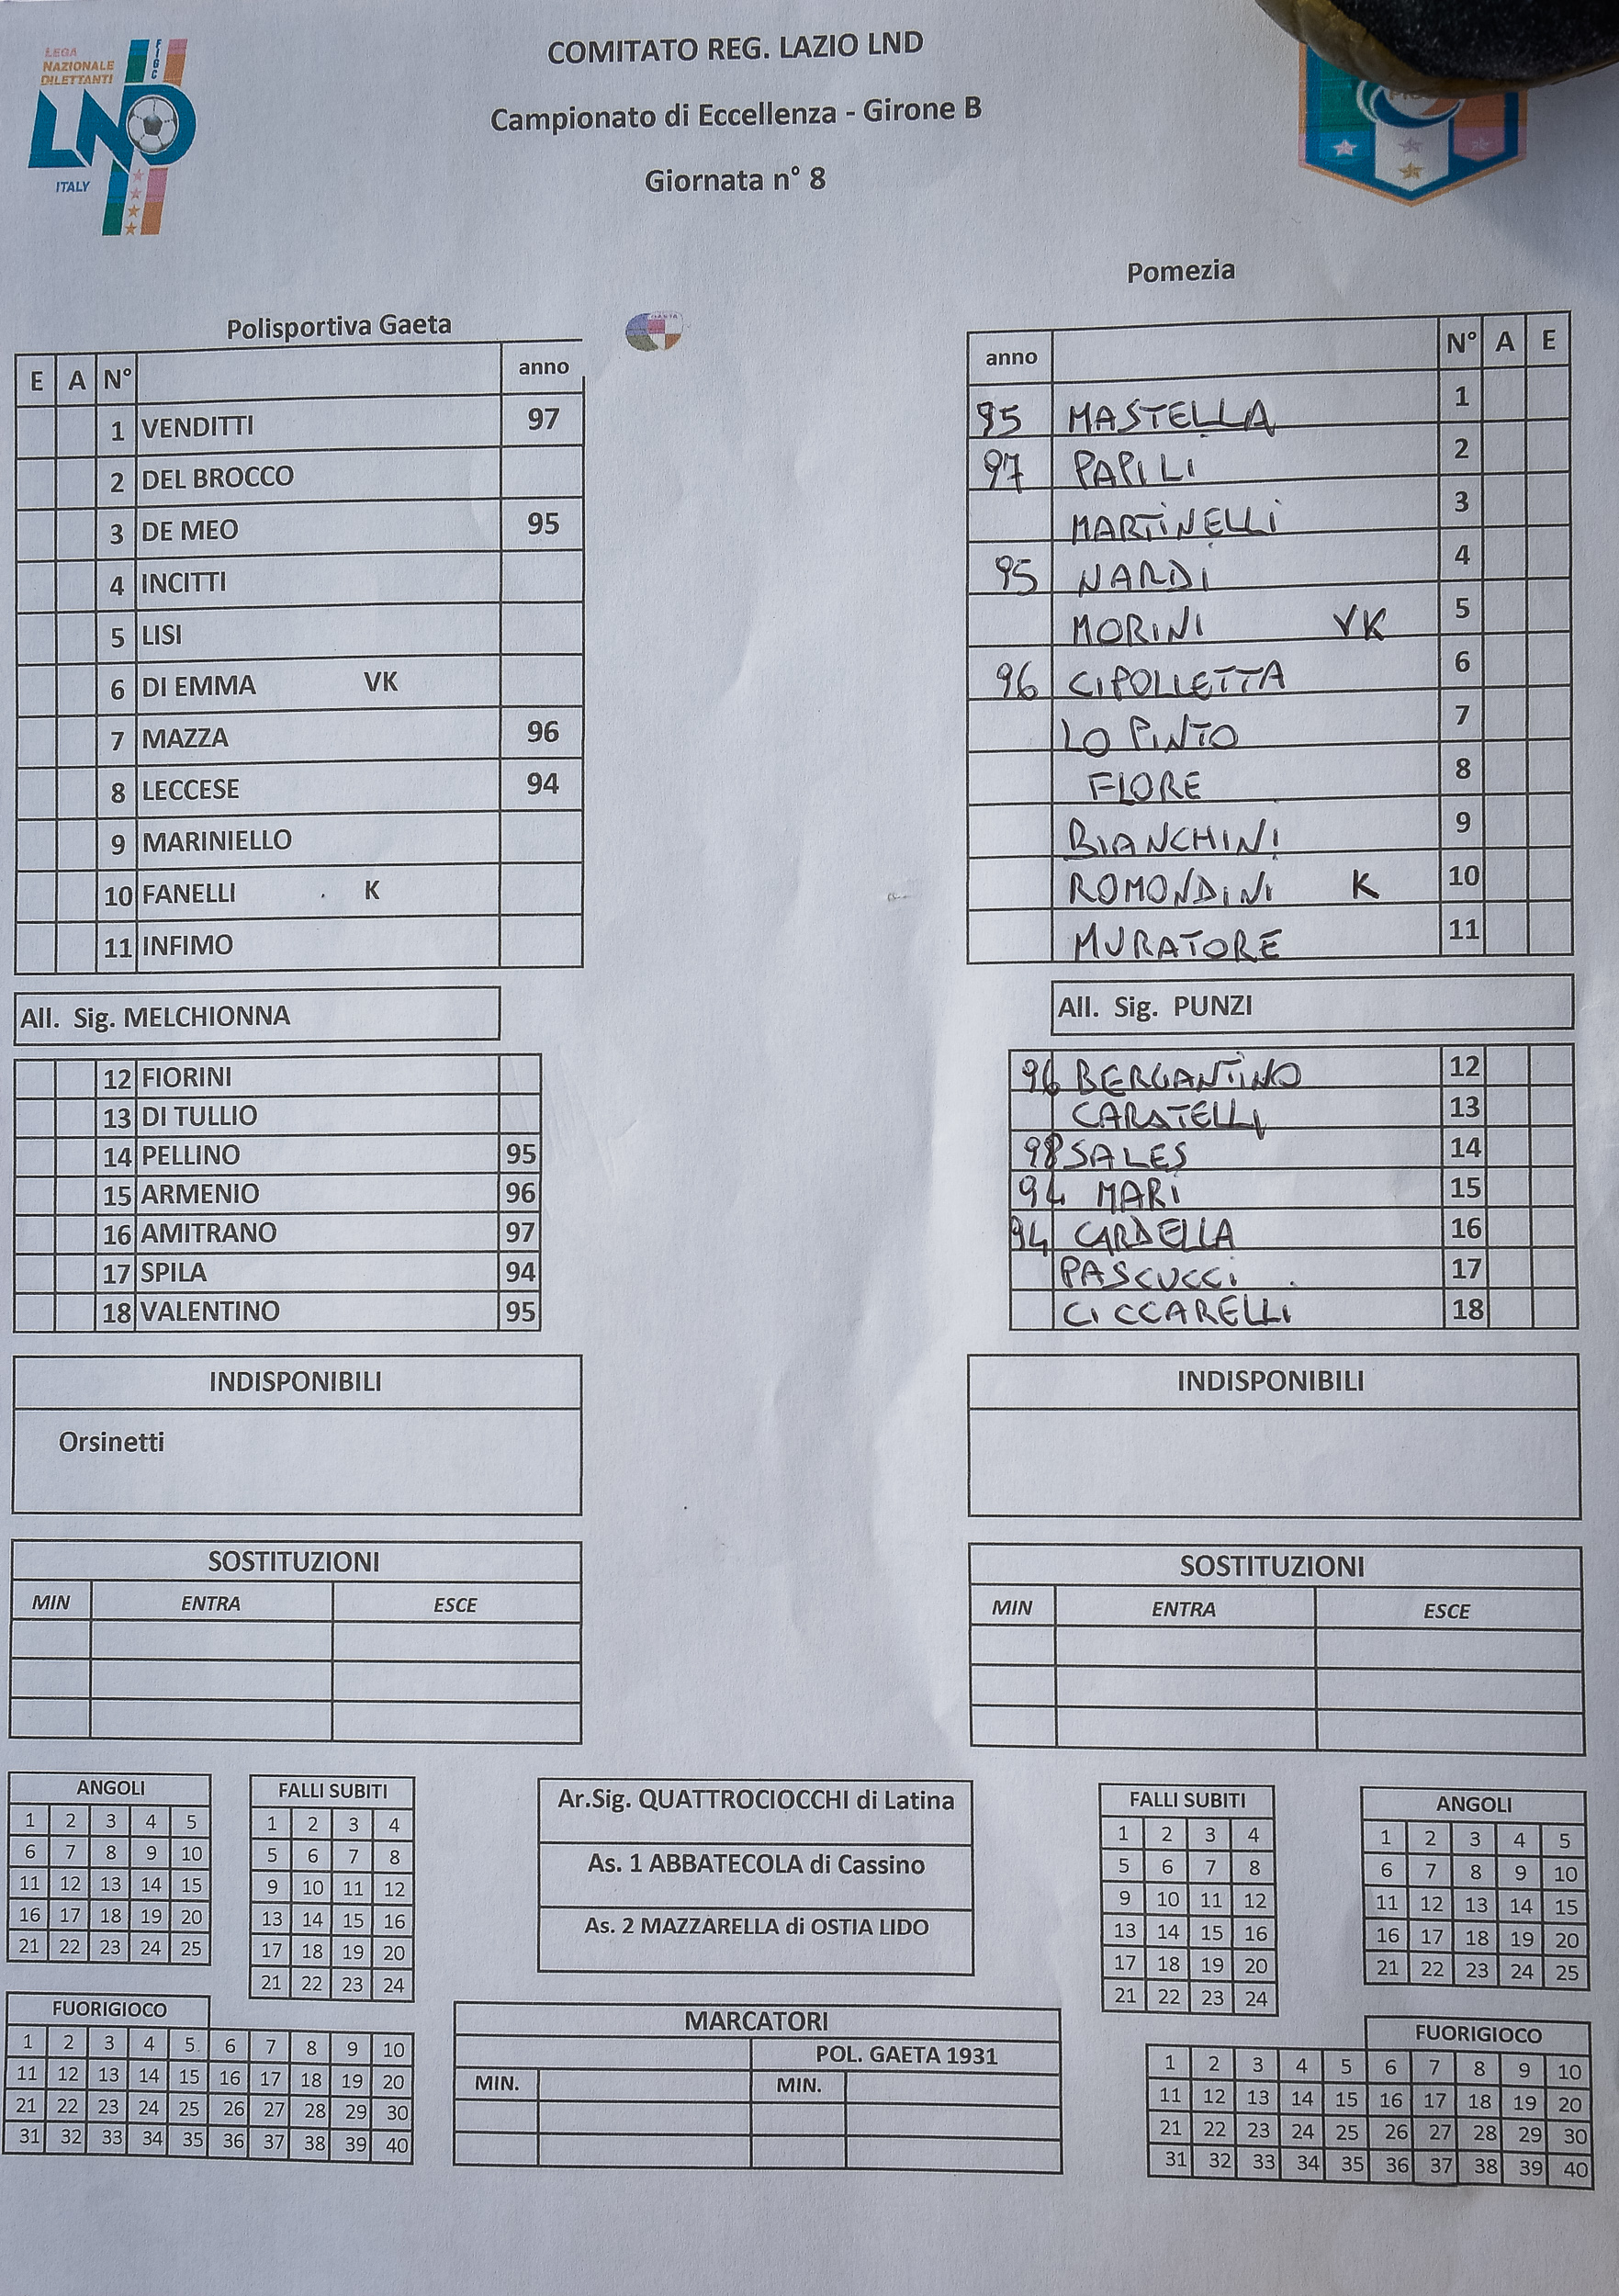 LEGA
NAZIONALE
DILETTANTI
FIGC
LND
ITALY
COMITATO REG. LAZIO LND
Campionato di Eccellenza - Girone B
Giornata n° 8
Polisportiva Gaeta
E A N° anno
1 VENDITTI 97
2 DEL BROCCO
3 DE MEO 95
4 INCITTI
5 LISI
6 DI EMMA VK
7 MAZZA 96
8 LECCESE 94
9 MARINIELLO
10 FANELLI K
11 INFIMO
All. Sig. MELCHIONNA
12 FIORINI
13 DI TULLIO
14 PELLINO 95
15 ARMENIO 96
16 AMITRANO 97
17 SPILA 94
18 VALENTINO 95
INDISPONIBILI
Orsinetti
SOSTITUZIONI
MIN ENTRA ESCE
Pomezia
anno N° A E
95 MASTELLA 1
97 PAPILI 2
MARTINELLI 3
95 NARDI 4
MORINI VK 5
96 CIPOLLETTA 6
LO PINTO 7
FIORE 8
BIANCHINI 9
ROMONDINI K 10
MURATORE 11
All. Sig. PUNZI
96 BERGANTINO 12
CARATELLI 13
98 SALES 14
94 MARI 15
94 CARDELLA 16
PASCUCCI 17
CICCARELLI 18
INDISPONIBILI
SOSTITUZIONI
MIN ENTRA ESCE
ANGOLI
1 2 3 4 5
6 7 8 9 10
11 12 13 14 15
16 17 18 19 20
21 22 23 24 25
FALLI SUBITI
1 2 3 4
5 6 7 8
9 10 11 12
13 14 15 16
17 18 19 20
21 22 23 24
Ar.Sig. QUATTROCIOCCHI di Latina
As. 1 ABBATECOLA di Cassino
As. 2 MAZZARELLA di OSTIA LIDO
FALLI SUBITI
1 2 3 4
5 6 7 8
9 10 11 12
13 14 15 16
17 18 19 20
21 22 23 24
ANGOLI
1 2 3 4 5
6 7 8 9 10
11 12 13 14 15
16 17 18 19 20
21 22 23 24 25
FUORIGIOCO
1 2 3 4 5 6 7 8 9 10
11 12 13 14 15 16 17 18 19 20
21 22 23 24 25 26 27 28 29 30
31 32 33 34 35 36 37 38 39 40
MARCATORI
POL. GAETA 1931
MIN. MIN.
FUORIGIOCO
1 2 3 4 5 6 7 8 9 10
11 12 13 14 15 16 17 18 19 20
21 22 23 24 25 26 27 28 29 30
31 32 33 34 35 36 37 38 39 40